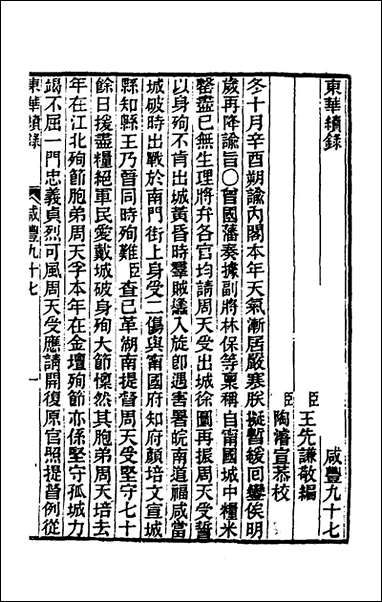 東華續錄　咸豐九十七
臣王先謙敬編
臣陶濬宣恭校
冬十月辛酉朔諭內閣本年天氣漸居嚴寒朕擬暫緩回鑾俟明
歲再降諭旨○曾國藩奏據副將林保等稟稱自甯國城中糧米
罄盡已無生理將弁各官均請周天受出城徐圖再振周天受誓
以身殉不肯出城黃昏時羣賊蠭入旋卽遇害署皖南道福咸當
城破時出戰於南門街上身受二傷與甯國府知府顏培文宣城
縣知縣王乃晉同時殉難臣查已革湖南提督周天受堅守七十
餘日援盡糧絕軍民愛戴城破身殉大節懍然其胞弟周天培去
年在江北殉節胞弟周天孚本年在金壇殉節亦係堅守孤城力
竭不屈一門忠義貞烈可風周天受應請開復原官照提督例從
東華續錄　咸豐九十七　一